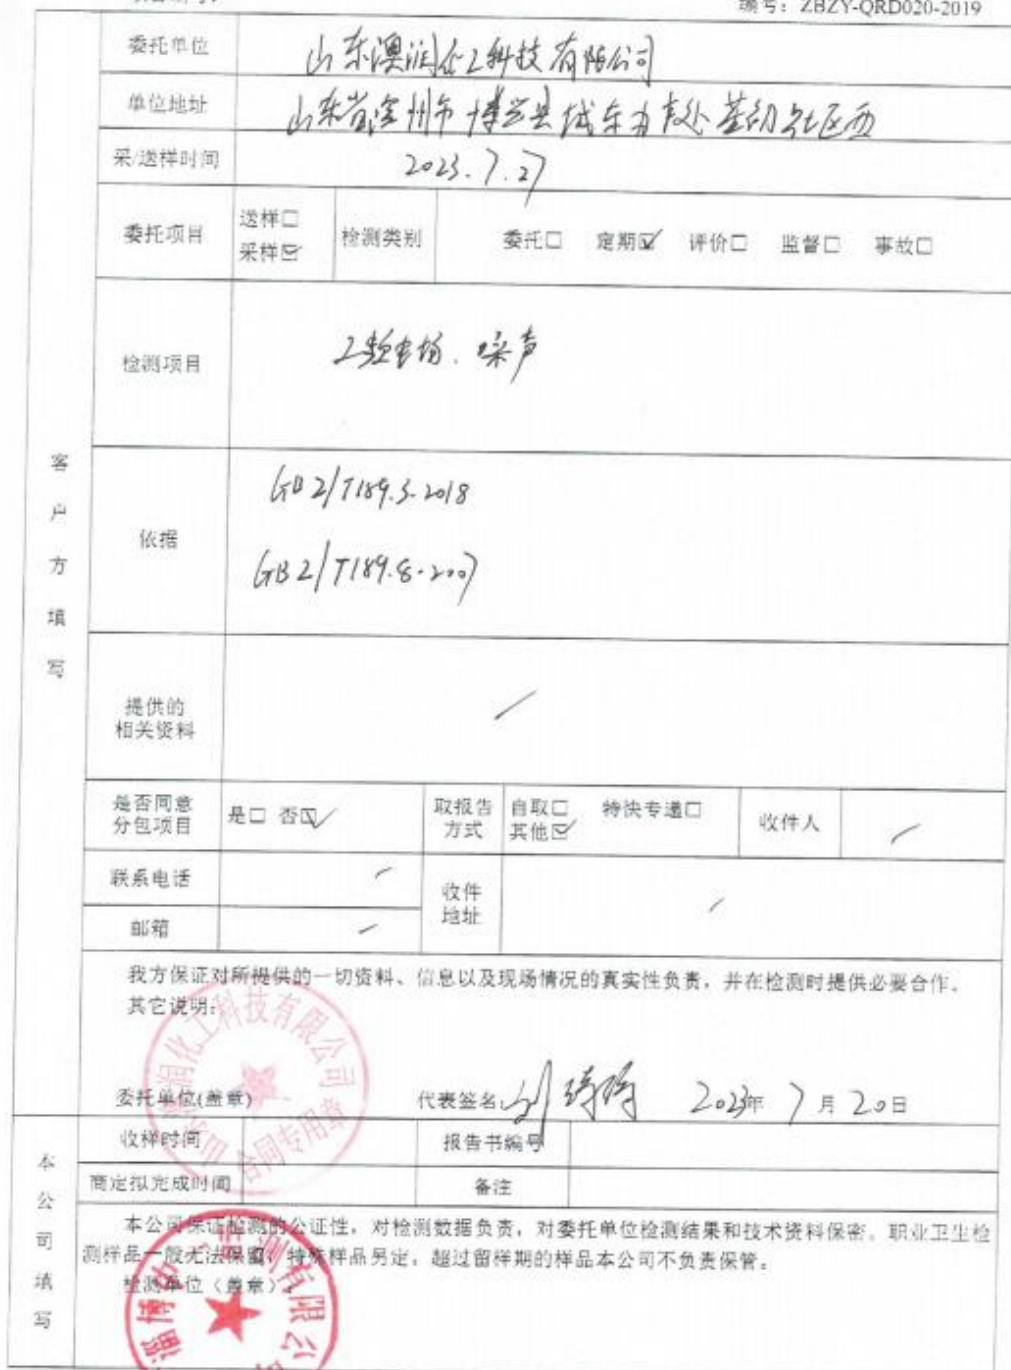 编号: ZBZY-QRD020-2019
委托单位 山东澳润化工科技有限公司
单位地址 山东省滨州市博兴县城东办事处基韧社区西
采/送样时间 2023.7.27
委托项目 送样□ 采样☑ 检测类别 委托□ 定期☑ 评价□ 监督□ 事故□
检测项目 工频电场、噪声
依据 GBZ/T189.3-2018
GBZ/T189.8-2007
提供的相关资料 /
是否同意分包项目 是□ 否☑ 取报告方式 自取□ 特快专递□ 其他☑ 收件人 /
联系电话 / 收件地址 /
邮箱 /
我方保证对所提供的一切资料、信息以及现场情况的真实性负责，并在检测时提供必要合作。
其它说明:
委托单位(盖章) 代表签名: 刘 2023年 7月 20日
客户方填写
润化工科技有限公司
合同专用章
收样时间 报告书编号
商定拟完成时间 备注
本公司保证检测的公证性，对检测数据负责，对委托单位检测结果和技术资料保密。职业卫生检
测样品一般无法保留，特殊样品另定，超过留样期的样品本公司不负责保管。
检测单位（盖章）:
本公司填写
淄博 测有限公